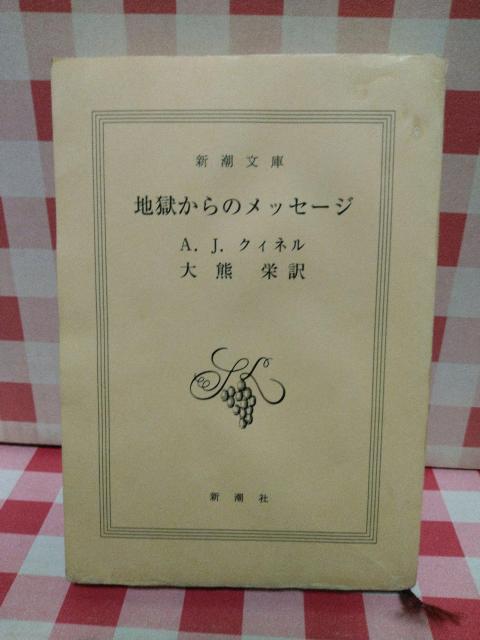 新潮文庫
地獄からのメッセージ
A. J. クィネル
大熊 栄訳
新潮社